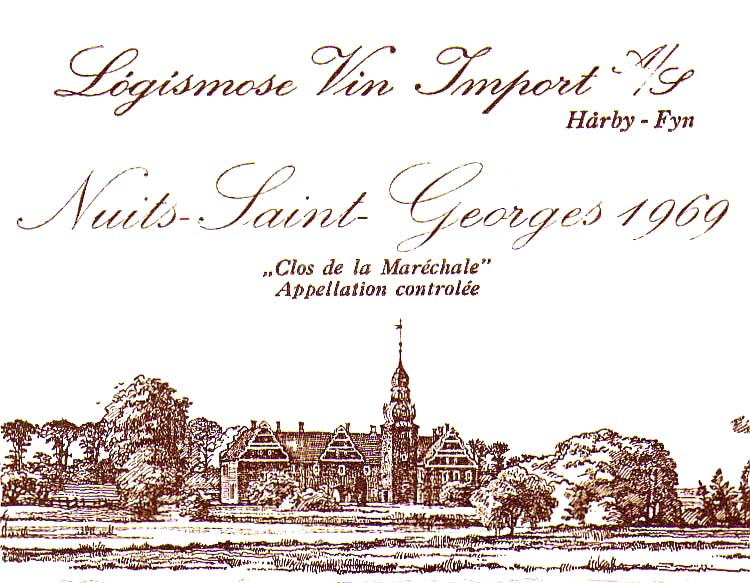 Lógismose Vin Import A/S
Hårby - Fyn
Nuits-Saint-Georges 1969
„Clos de la Maréchale”
Appellation controlée